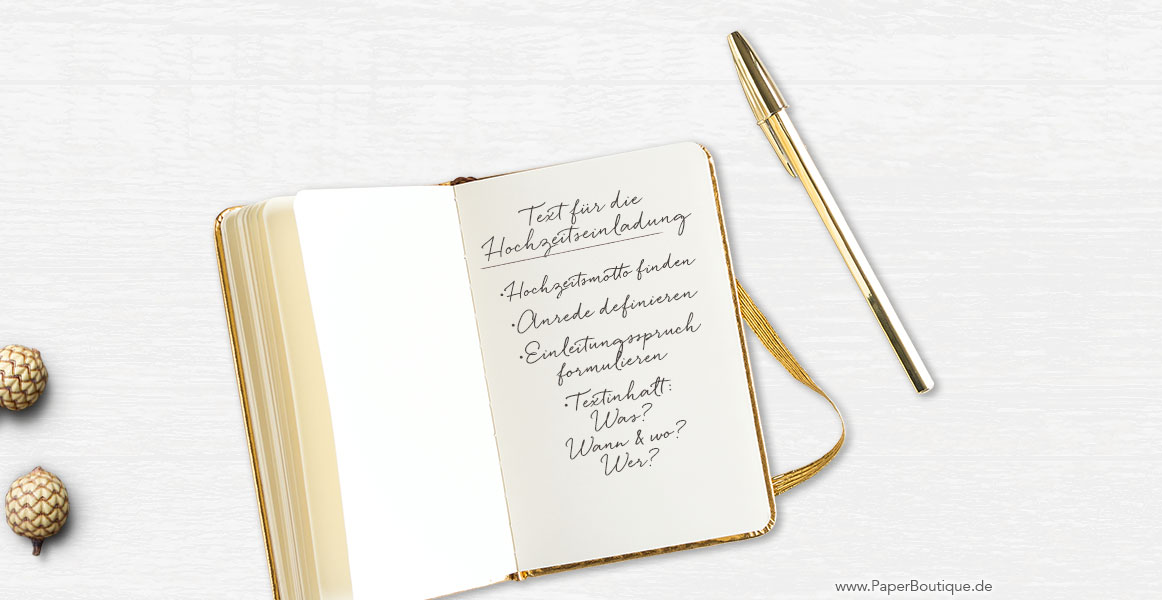 Text für die
Hochzeitseinladung
•Hochzeitsmotto finden
•Anrede definieren
•Einleitungsspruch
formulieren
•Textinhalt:
Was?
Wann & wo?
Wer?
www.PaperBoutique.de